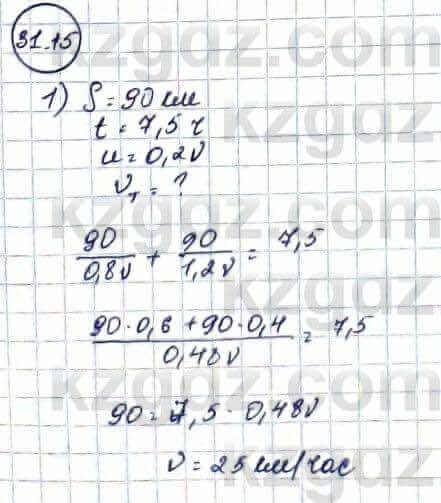 31.15
1) S = 90 км
t = 7,5 ч
u = 0,2v
v_т = ?
90/0,8v + 90/1,2v = 7,5
(90·0,6 + 90·0,4)/0,48v = 7,5
90 = 7,5 · 0,48v
v = 25 км/час
kzgdz.com